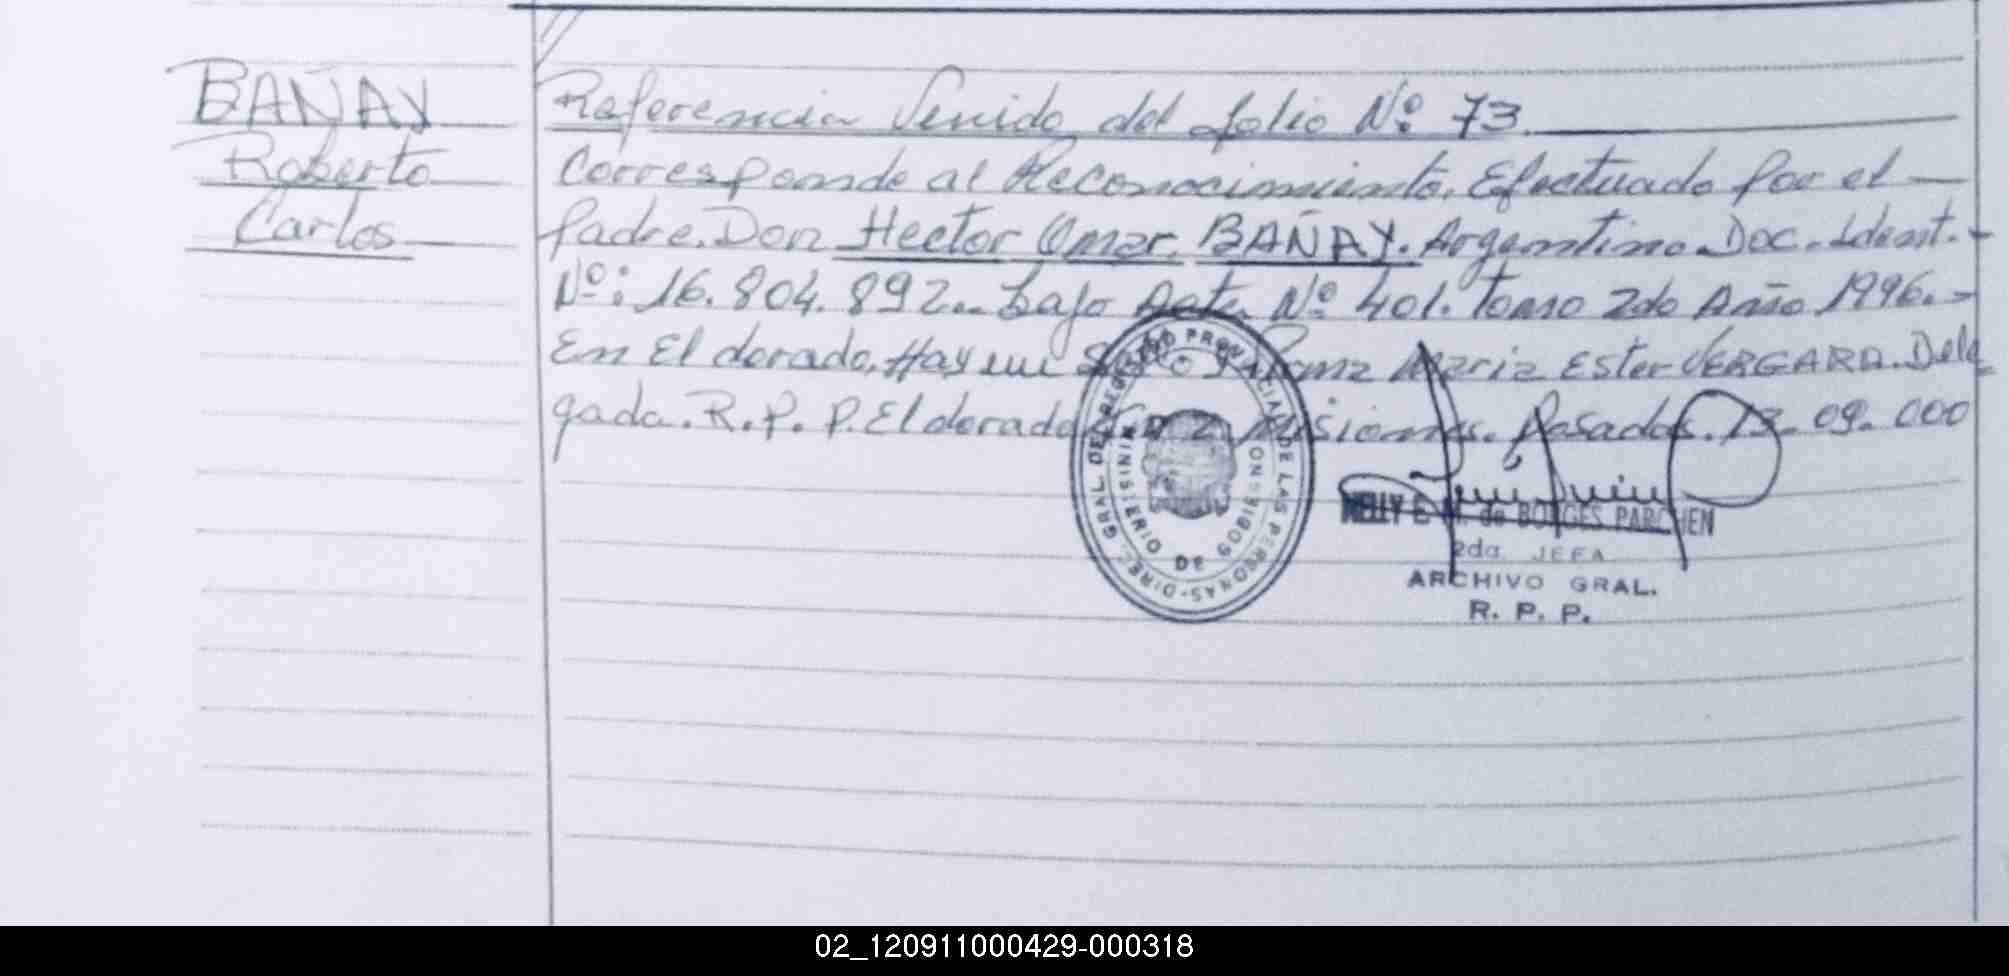 BAÑAY
Roberto
Carlos
Referencia Venida del folio Nº 73.
Corresponde al Reconocimiento. Efectuado por el —
Padre. Don Hector Omar. BAÑAY. Argentino Doc. Ident. -
Nº: 16.804.892.. bajo Acta Nº 401. Tomo 2do Año 1996. -
En El dorado. Hay un Sello y Firma Maria Ester VERGARA. Dele
gada. R. P. P. El dorado Misiones. Posadas. 13. 09. 000
DIREC. GRAL. DEL REGISTRO PROVINCIAL DE LAS PERSONAS
MINISTERIO DE GOBIERNO
NELLY E. M. de BORGES PARCHEN
2da. JEFA
ARCHIVO GRAL.
R. P. P.
02_120911000429-000318